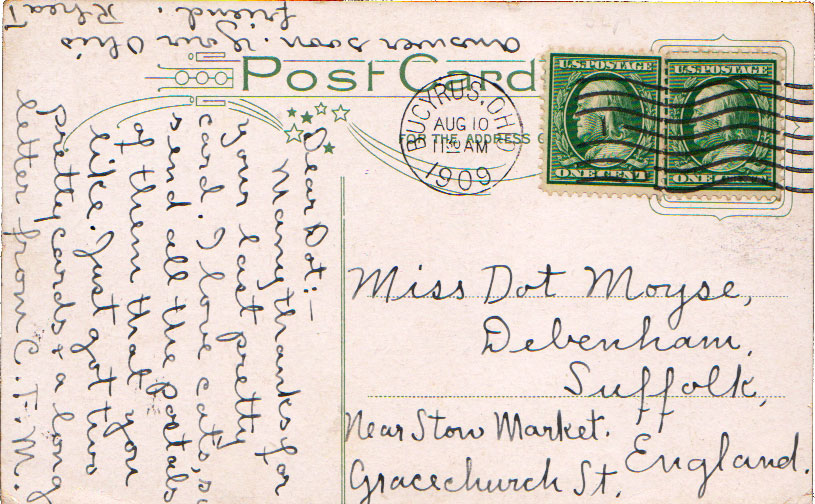 POST CARD
FOR THE ADDRESS
BUCYRUS, OHIO
AUG 10
11 AM
1909
U.S. POSTAGE
ONE CENT
U.S. POSTAGE
ONE CENT
Dear Dot:—
Many thanks for
your last pretty
card. I love cats, so
send all the Postals
of them that you
like. Just got two
pretty cards & a long
letter from C. T. M.
answer soon. Your Ohio
friend. Rhea T
Miss Dot Moyse,
Debenham,
Suffolk,
Near Stow Market.
England.
Gracechurch St.